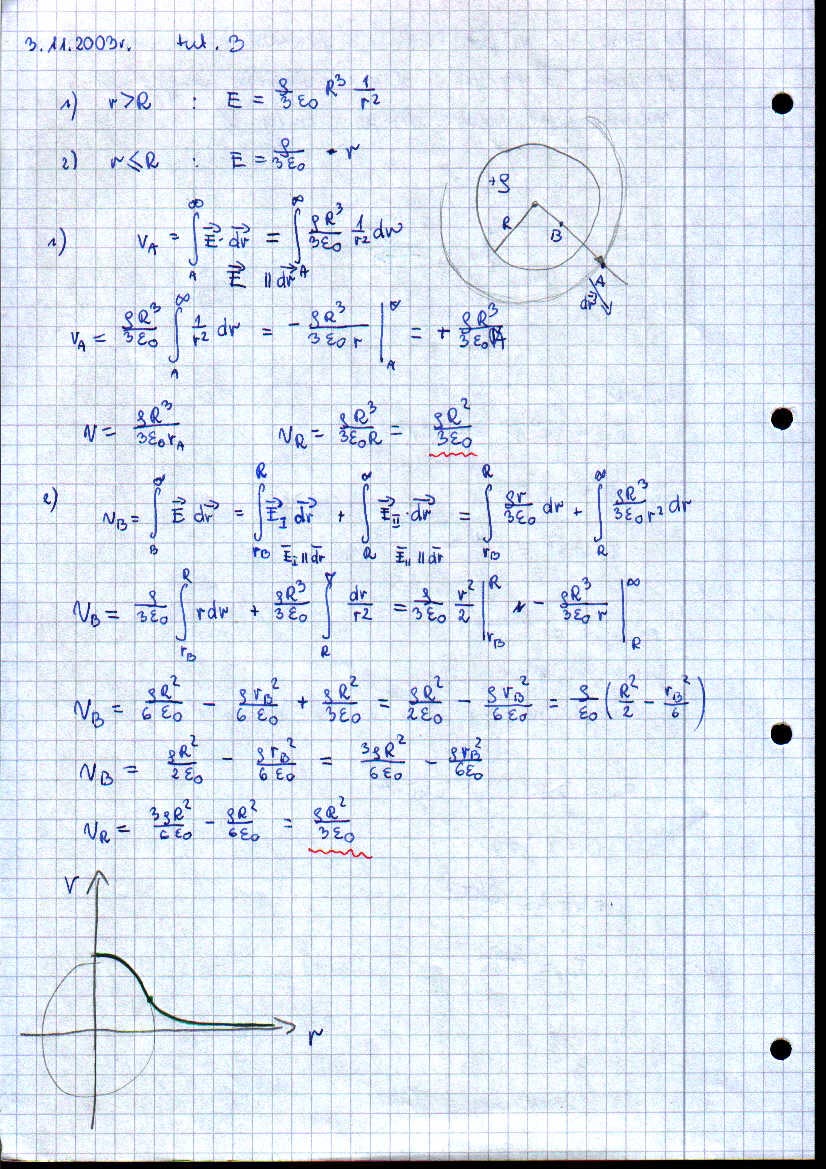 3.11.2003r. tut. 3
1) r > R : E = ρ/3ε₀ R³ 1/r²
2) r ≤ R : E = ρ/3ε₀ · r
+ρ
R
B
A
dr
1) V_A = ∫_A^∞ E⃗ · dr⃗ = ∫_A^∞ ρR³/3ε₀ 1/r² dr
E⃗ || dr⃗
V_A = ρR³/3ε₀ ∫_A^∞ 1/r² dr = - ρR³/3ε₀r |_A^∞ = + ρR³/3ε₀r_A
V = ρR³/3ε₀r_A V_R = ρR³/3ε₀R = ρR²/3ε₀
2) V_B = ∫_B^∞ E⃗ dr⃗ = ∫_{r_B}^R E⃗_I dr⃗ + ∫_R^∞ E⃗_II · dr⃗ = ∫_{r_B}^R ρr/3ε₀ dr + ∫_R^∞ ρR³/3ε₀r² dr
E_I || dr E_II || dr
V_B = ρ/3ε₀ ∫_{r_B}^R r dr + ρR³/3ε₀ ∫_R^∞ dr/r² = ρ/3ε₀ r²/2 |_{r_B}^R - ρR³/3ε₀r |_R^∞
V_B = ρR²/6ε₀ - ρr_B²/6ε₀ + ρR²/3ε₀ = ρR²/2ε₀ - ρr_B²/6ε₀ = ρ/ε₀ (R²/2 - r_B²/6)
V_B = ρR²/2ε₀ - ρr_B²/6ε₀ = 3ρR²/6ε₀ - ρr_B²/6ε₀
V_R = 3ρR²/6ε₀ - ρR²/6ε₀ = ρR²/3ε₀
V
r